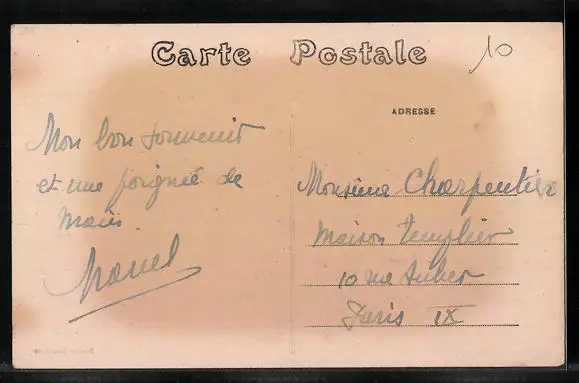 Carte Postale
10
ADRESSE
Mon bon souvenir
et une poignée de
main.
Monsieur Charpentier
Maison Templier
10 rue Auber
Paris IX